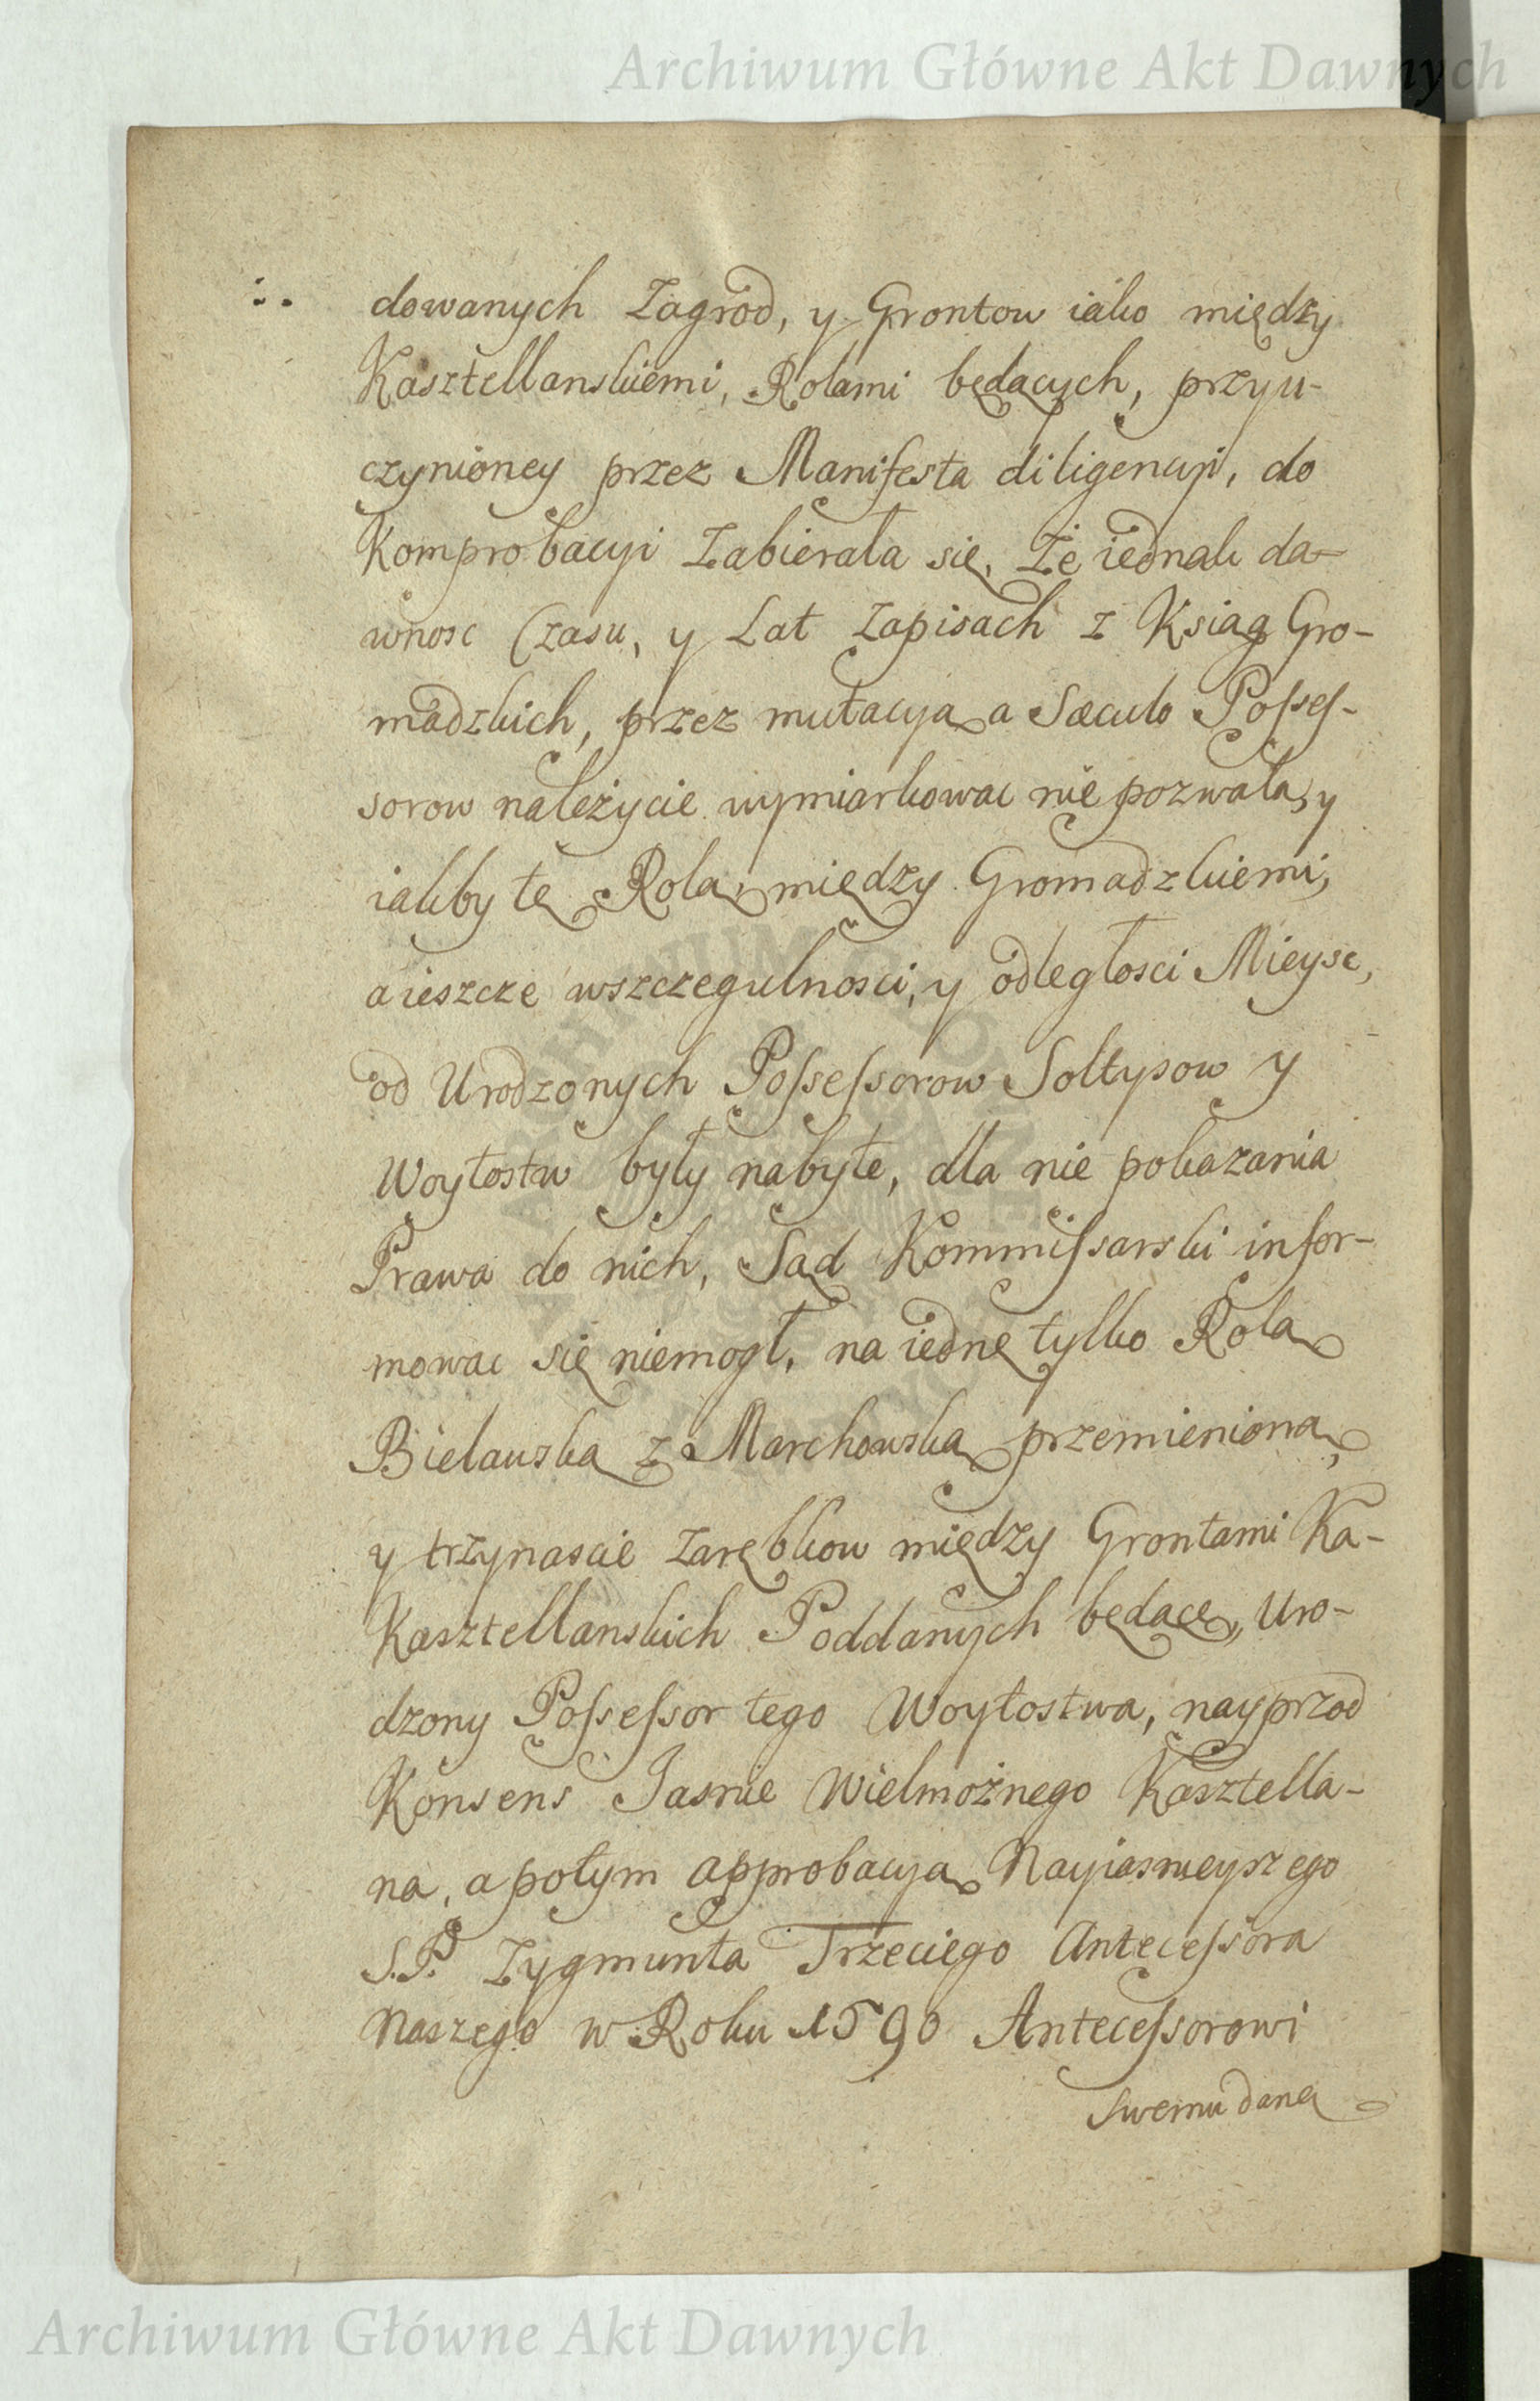 Archiwum Główne Akt Dawnych
dowanych Zagrod, y Grontow iako między
Kasztellanskiemi, Rolami będących, przyu-
czynioney przez Manifesta diligencyi, do
Komprobacyi Zabierała się, Że iednak da-
wnosc Czasu, y Lat Zapisach z Ksiąg Gro-
madzkich, przez mutacyą a Sæculo Possess-
sorow należycie wymiarkowac nie pozwala, y
iakby tę Rolą między Gromadzkiemi,
a ieszcze wszczegulnosci, y odległosci Mieysc,
od Urodzonych Possessorow Soltysow y
Woytostw były nabyte, dla nie pokazania
Prawa do nich, Sąd Kommissarski infor-
mowac się niemogł, na iednę tylko Rolą
Bielauską z Marchowską przemienioną,
y trzynascie Zarębkow między Grontami Ka-
Kasztellanskich Poddanych będące, Uro-
dzony Possessor tego Woytostwa, nayprzod
Konsens Jasnie Wielmożnego Kasztella-
na, a potym approbacyą Nayiasnieyszego
S.P. Zygmunta Trzeciego Antecessora
Naszego w Roku 1590 Antecessorowi
Swemu daną
Archiwum Główne Akt Dawnych